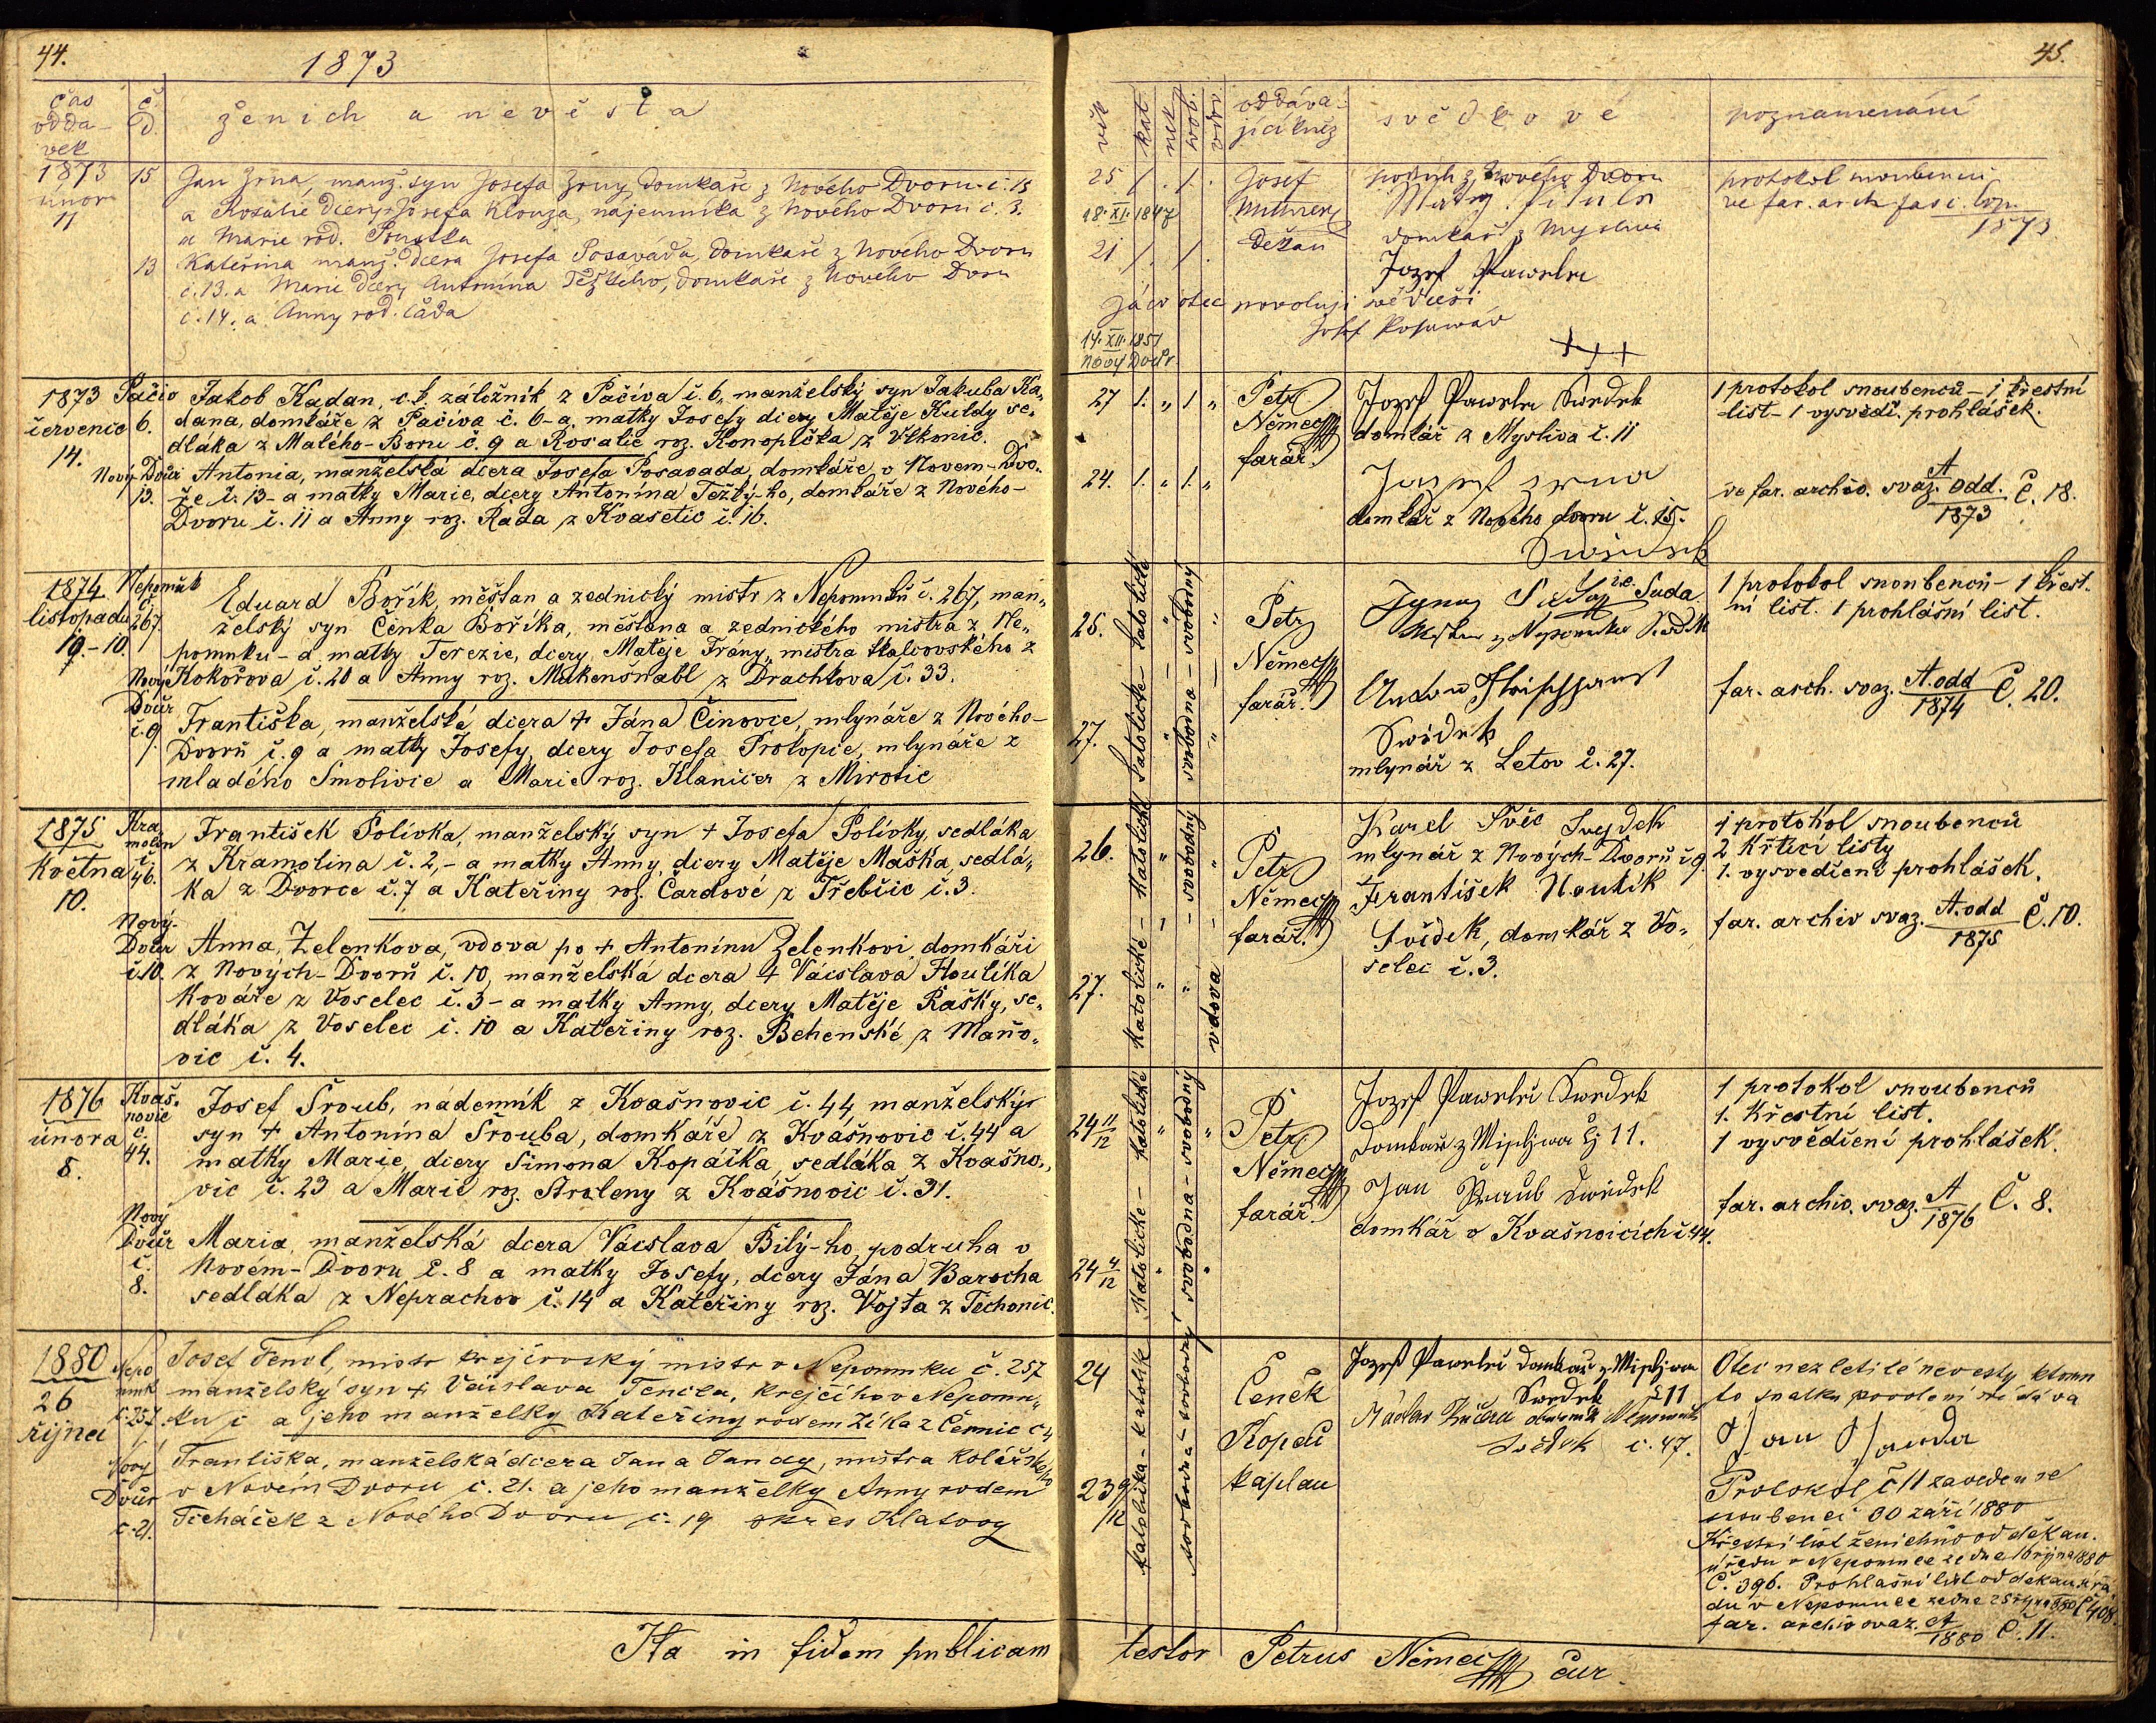 44.
1873
čas odda-vek
č. d.
ženich a nevěsta
1873 únor 11
15
Jan Zrna, manž. syn Josefa Zrny, domkaře z Nového Dvoru č. 15
a Rosalie dcery Josefa Klouza, nájemníka z Nového Dvoru č. 3.
a Marie rod.
13
Kateřina manž. dcera Josefa Posavada, domkaře z Nového Dvoru
č. 13. a Marie dcery Antonína Težkého, domkaře z Nového Dvoru
č. 14. a Anny rod.
1873 července 14.
Pačiv 6.
Jakob Kadan, c.k. záložník z Pačiva č. 6, manželský syn Jakuba Ka„
dana, domkáře z Pačiva č. 6 - a matky Josefy dcery Matěje Kuldy se„
dláka z Malého-Boru č. 9 a Rosalie roz. Konopička z Vlkonic.
Nový Dvůr 13.
Antonia, manželská dcera Josefa Posavada, domkáře v Novem-Dvo„
ře č. 13 - a matky Marie, dcery Antonína Težký-ho, domkáře z Nového-
Dvoru č. 11 a Anny roz. Rada z Kvasetic č. 16.
1874 listopadu 19.-10.
Nepomuk č. 267.
Eduard Bořík, měšťan a zednický mistr z Nepomuku č. 267, man„
želský syn Čenka Boříka, měšťana a zednického mistra z Ne„
pomuku - a matky Terezie, dcery Matěje Frany, mistra tkalcovského z
Kokořova č. 20 a Anny roz. Mukenšnabl z Drachkova č. 33.
Nový Dvůr č. 9
Františka, manželská dcera + Jána Činovce, mlynáře z Nového-
Dvorů č. 9 a matky Josefy, dcery Josefa Prokopce, mlynáře z
mladého Smolivce a Marie roz. Klaničer z Mirotic
1875 května 10.
Kramolin č. 46.
František Polívka, manželský syn + Josefa Polívky, sedláka
z Kramolina č. 2, - a matky Anny, dcery Matěje Maška, sedlá„
ka z Dvorce č. 7 a Kateřiny roz. Čardové z Třebčic č. 3.
Nový-Dvůr č. 10.
Anna, Zelenkova, vdova po + Antonínu Zelenkovi domkáři
z Nových-Dvorů č. 10, manželská dcera + Václava Houlíka
kováře z Voselec č. 3 - a matky Anny, dcery Matěje Rašky, se„
dláka z Voselec č. 10 a Kateřiny roz. Behenské z Maňo„
vic č. 4.
1876 února 8.
Kvašňovic č. 44.
Josef Šroub, nádenník z Kvašnovic č. 44, manželský
syn + Antonína Šrouba, domkáře z Kvášnovic č. 44 a
matky Marie, dcery Šimona Kopáčka, sedláka z Kvašno„
vic č. 23 a Marie roz. Straleny z Kvášnovic č. 31.
Nový Dvůr č. 8.
Maria manželská dcera Václava Bilý-ho podruha v
Novém-Dvoru č. 8 a matky Josefy, dcery Jána Barocha
sedláka z Neprachov č. 14 a Kateřiny roz. Vojta z Těchonic.
1880 26 října
Nepomuk č. 257
Josef Tencl, mistr krejčovský mistr v Nepomuku č. 257
manželský syn + Václava Tencla, krejčího v Nepomu„
ku a jeho manželky Kateřiny rodem Zíka z Čemnic č. 4
Nový Dvůr č. 21.
Františka, manželská dcera Jana Jandy, mistra kolářského
v Novém Dvoru č. 21. a jeho manželky Anny rodem
Tícháček z Nového Dvoru č. 19 okres Klatovy
Ita in fidem publicam
45.
věk
kat.
nek.
svob.
vdov.
oddáva-jící kněz
svědkové
poznamenání
25 1. 1.
18. XI. 1847
21 1. 1.
Josef
děkan
z Nového Dvoru
domkař z Mysliva
Jozef Pawelec
Já co otec povoluji
14. XII. 1851
Nový Dvůr
+++
protokol snoubenců
ve far. arch. fasc. kop.
1873
27 1. „ 1 „
24. 1. „ 1. „
Petr Němec farář.
Jozef Pawelec Swedek
domkář z Mysliva č. 11
Jozef Zrna
domkář z Nového dvoru č. 15.
Swiedek
1 protokol snoubenců - 1 křestní
list - 1 vysvědč. prohlášek.
ve far. archiv. svaz. A odd. 1873 Č. 18.
26.
27.
katolické - katolické
svobodna - svobodný
Petr Němec farář.
Suda
Swedek
Swědek
mlynář z Letov č. 27.
1 protokol snoubenců - 1 křest-
ní list. 1 prohlášní list.
far. arch. svaz. A. odd 1874 Č. 20.
26.
27.
katolické - katolické
- svobodný
vdova
Petr Němec farář.
Karel Švíc Svejdek
mlynář z Nových-Dvorů č 9.
František Houlík
Svědek, domkář z Vo„
selec č. 3.
1 protokol snoubenců
2 křtící listy
1. vysvedčení prohlášek.
far. archiv svaz. A. odd 1875 Č. 10.
24 11/12
24 4/12
katolické - katolické
svobodna - svobodný
Petr Němec farář.
Jozef Pawelec Swedek
Domkař z Mysliwa č 11.
Jan Šraub Swědek
domkář v Kvašňovicích č 44.
1 protokol snoubenců
1. Křestní list.
1 vysvědčení prohlášek.
far. archiv. svaz. A 1876 Č. 8.
24
23 9/12
katolička - katolík
svobodná - svobodný
Čeněk Kopecí kaplan
Jozef Pawelec Domkař z Mysliwa
Swedek č 11
Václav Kučera Nepomuk
svědek č. 47.
Otec nezletilé nevesty ktomu
to svatku povolení své dáva
Jan Janda
Protokol č 11 zaveden se
snoubenci 30 září 1880
Křestní list ženichův od děkan.
úřadu v Nepomuce ze dne 16 října 1880
Č. 396. Prohlašní list od děkan. úřa
du v Nepomuce ze dne 25 října 1880 č 408.
far. archiv svaz. A 1880 Č. 11.
testor Petrus Němec cur.